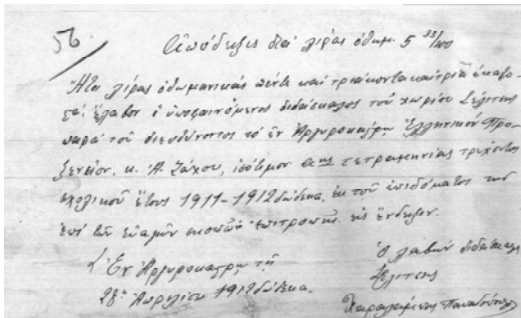 56
Ἀπόδειξις διὰ λίρας ὀθωμ. 5 33/100
Ἤτοι λίρας ὀθωμανικάς πέντε καὶ τριάκοντα καὶ τρία ἑκατο-
στά ἔλαβον ὁ ὑποφαινόμενος διδάσκαλος τοῦ χωρίου Σέλιτσης
παρὰ τοῦ διευθύνοντος τὸ ἐν Ἀργυροκάστρῳ Ἑλληνικόν Προ-
ξενεῖον, κ. Ζάχου, τετραμηνίας τρέχοντος
σχολικοῦ ἔτους 1911-1912 δώδεκα, ἐκ τοῦ ἐπιδόματος τῆς
ἐπὶ τῶν ἐπιτροπῆς εἰς ἔνδειξιν.
Ἐν Ἀργυροκάστρῳ τῇ
28ῃ Ἀπριλίου 1912 δώδεκα.
ὁ λαβών διδάσκαλος
Σέλιτσης
Χαράλαμπος Παπαδόπουλος